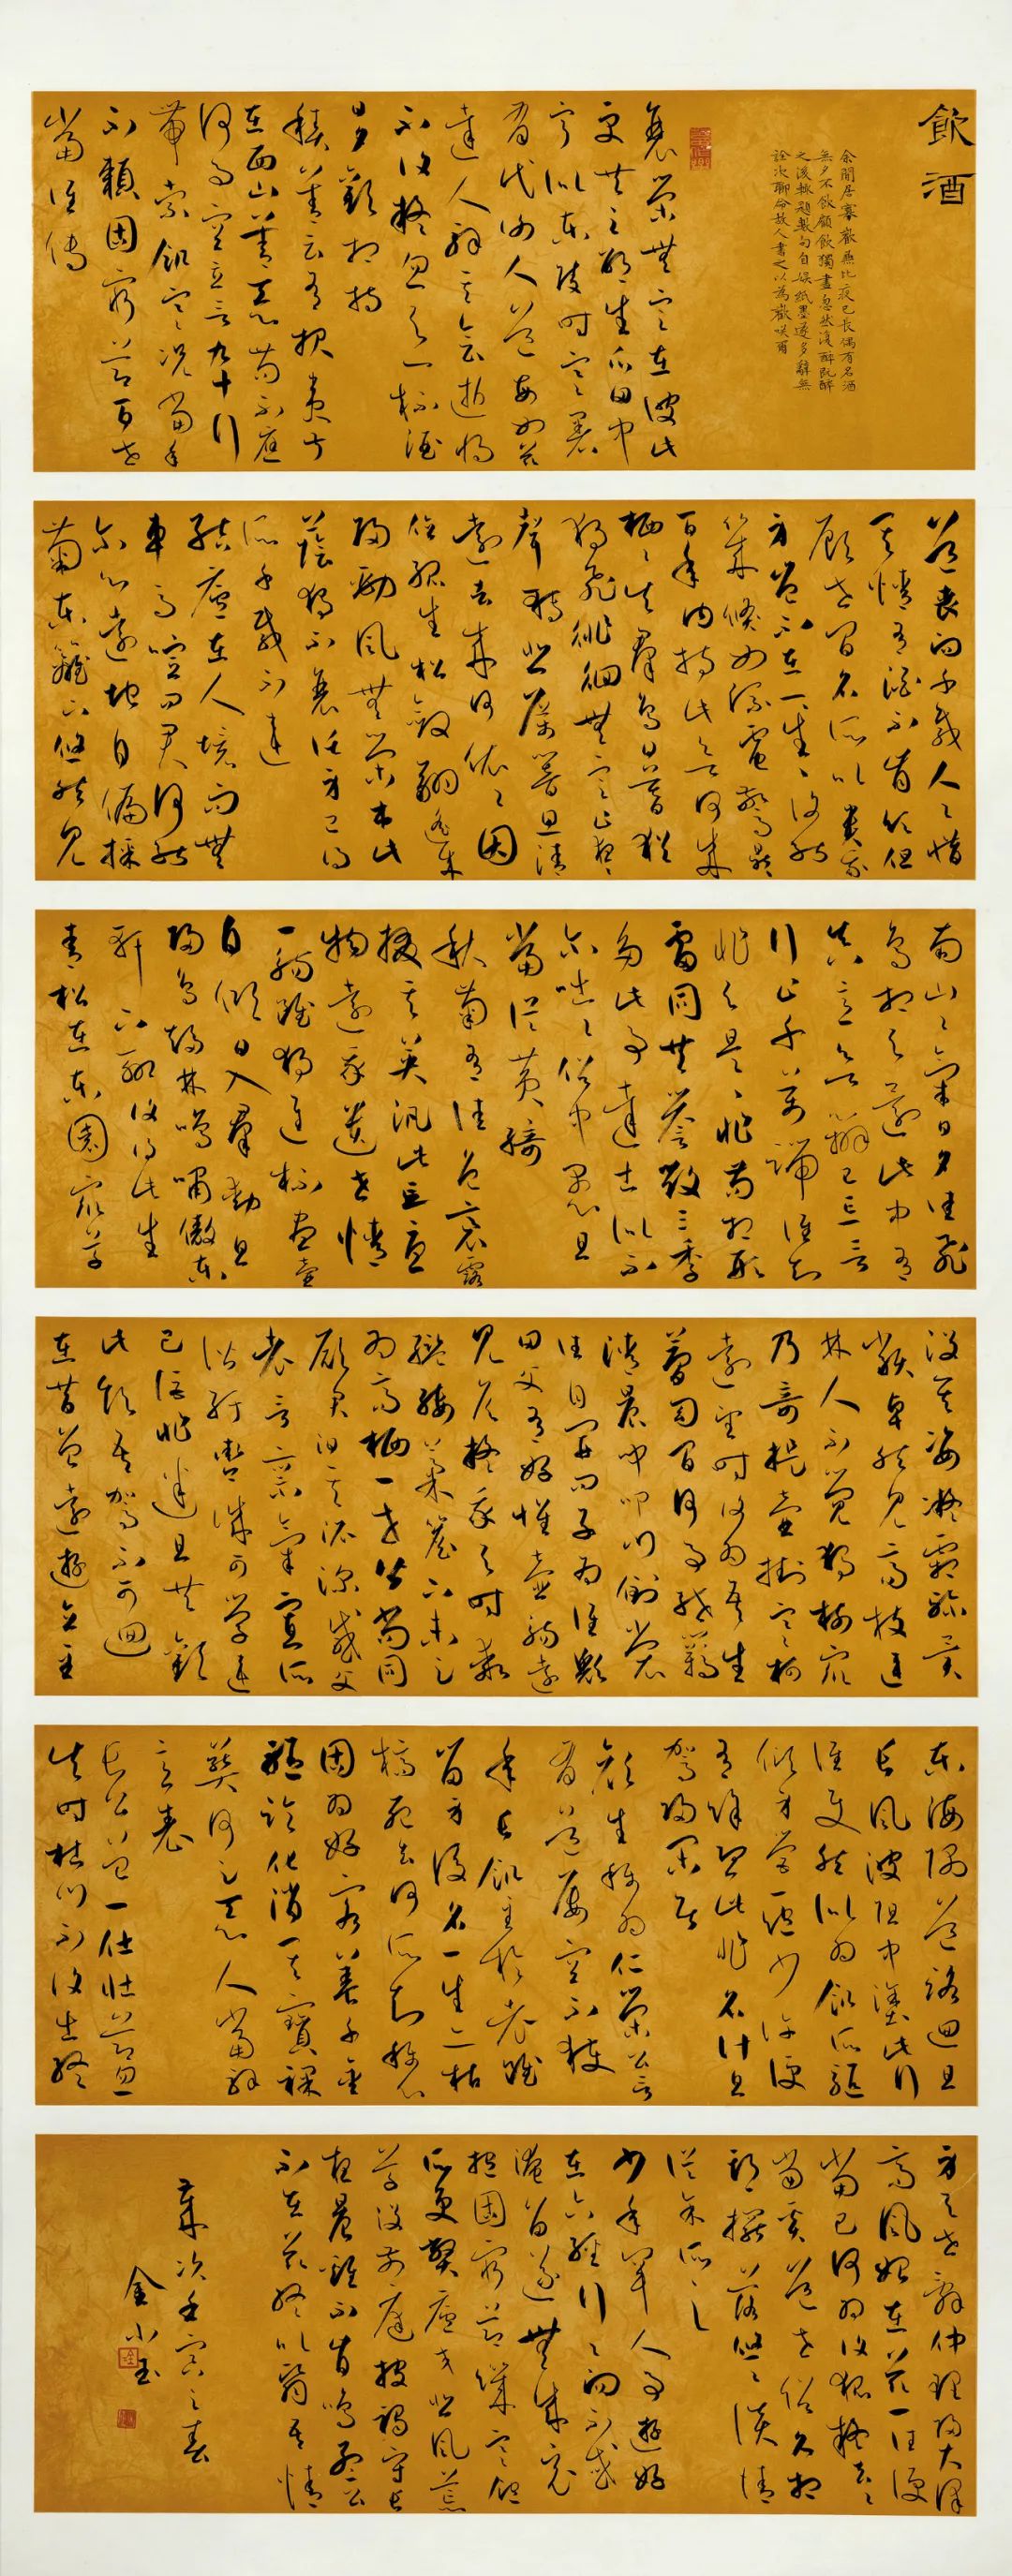 飲酒
余閒居寡歡兼比夜已長偶有名酒
無夕不飲顧飲獨盡忽然復醉既醉
之後輒題數句自娛紙墨遂多辭無
詮次聊命故人書之以為歡咲爾
衰榮無定在彼此
更共之邵生瓜田中
寧似東陵時寒暑
有代謝人道每如茲
達人解其會逝將
不復疑忽與一樽酒
日夕歡相持
積善云有報夷叔
在西山善惡苟不應
何事空立言九十行
帶索飢寒況當年
不賴固窮節百世
當誰傳
道喪向千載人人惜
其情有酒不肯飲但
顧世間名所以貴我
身豈不在一生一生復能
幾倏如流電驚鼎鼎
百年內持此欲何成
栖栖失群鳥日暮猶
獨飛徘徊無定止夜夜
聲轉悲厲響思清
遠去來何依依因
值孤生松斂翮遙來
歸勁風無榮木此
蔭獨不衰託身已得
所千載不違
結廬在人境而無
車馬喧問君何能
爾心遠地自偏採
菊東籬下悠然見
南山山氣日夕佳飛
鳥相與還此中有
真意欲辨已忘言
行止千萬端誰知
非與是是非苟相形
雷同共譽毀三季
多此事達士似不
爾咄咄俗中愚且
當從黃綺
秋菊有佳色裛露
掇其英汎此忘憂
物遠我遺世情
一觴雖獨進杯盡壺
自傾日入群動息
歸鳥趨林鳴嘯傲東
軒下聊復得此生
青松在東園眾草
沒其姿凝霜殄異
類卓然見高枝連
林人不覺獨樹眾
乃奇提壺挂寒柯
遠望時復為吾生
夢幻間何事紲羈
清晨聞叩門倒裳
往自開問子為誰歟
田父有好懷壺觴遠
見候疑我與時乖
繿縷茅簷下未足
為高栖一世皆尚同
願君汩其泥深感父
老言稟氣寡所
諧紆轡誠可學違
己詎非迷且共歡
此飲吾駕不可迴
在昔曾遠遊直至
東海隅道路迴且
長風波阻中塗此行
誰使然似為飢所驅
傾身營一飽少許便
有餘恐此非名計息
駕歸閒居
顏生稱為仁榮公言
有道屢空不獲
年長飢至於老雖
留身後名一生亦枯
槁死去何所知稱心
固為好客養千金
軀臨化消其寶裸
葬何足惡人當解
意表
長公曾一仕壯節忽
失時杜門不復出終
身與世辭仲理歸大澤
高風始在茲一往便
當已何為復狐疑去去
當奚道世俗久相
欺擺落悠悠談請
從余所之
少年罕人事遊好
在六經行行向不惑
淹留遂無成竟
抱固窮節飢寒飽
所更弊廬交悲風荒
草沒前庭披褐守長
夜晨雞不肯鳴孟公
不在茲終以翳吾情
歲次壬寅之春
金小玉